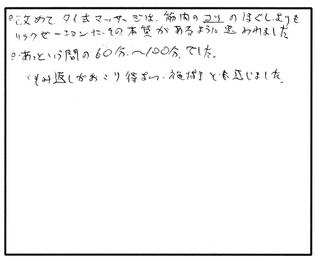 ○改めて タイ式マッサージは、筋肉のコリのほぐしよりも
リラクゼーションに、その本質があるように思われました
○あっという間の60分〜100分でした。
もみ返しがおこり得ない と感じました